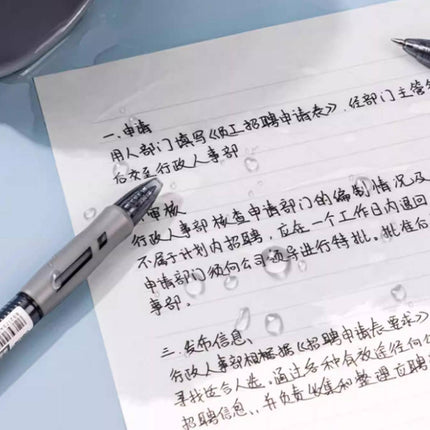 一.申请
用人部门填写《员工招聘申请表》,经部门主管
后交至行政人事部
审核
行政人事部核查申请部门的编制情况及
不属于计划内招聘,应在一个工作日内退回
申请部门须向公司领导进行特批。批准后
事部.
三.发布信息、
行政人事部根据《招聘申请表要求》
寻找适合人选。通过各种有效途径向
招聘信息、并负责收集和整理应聘